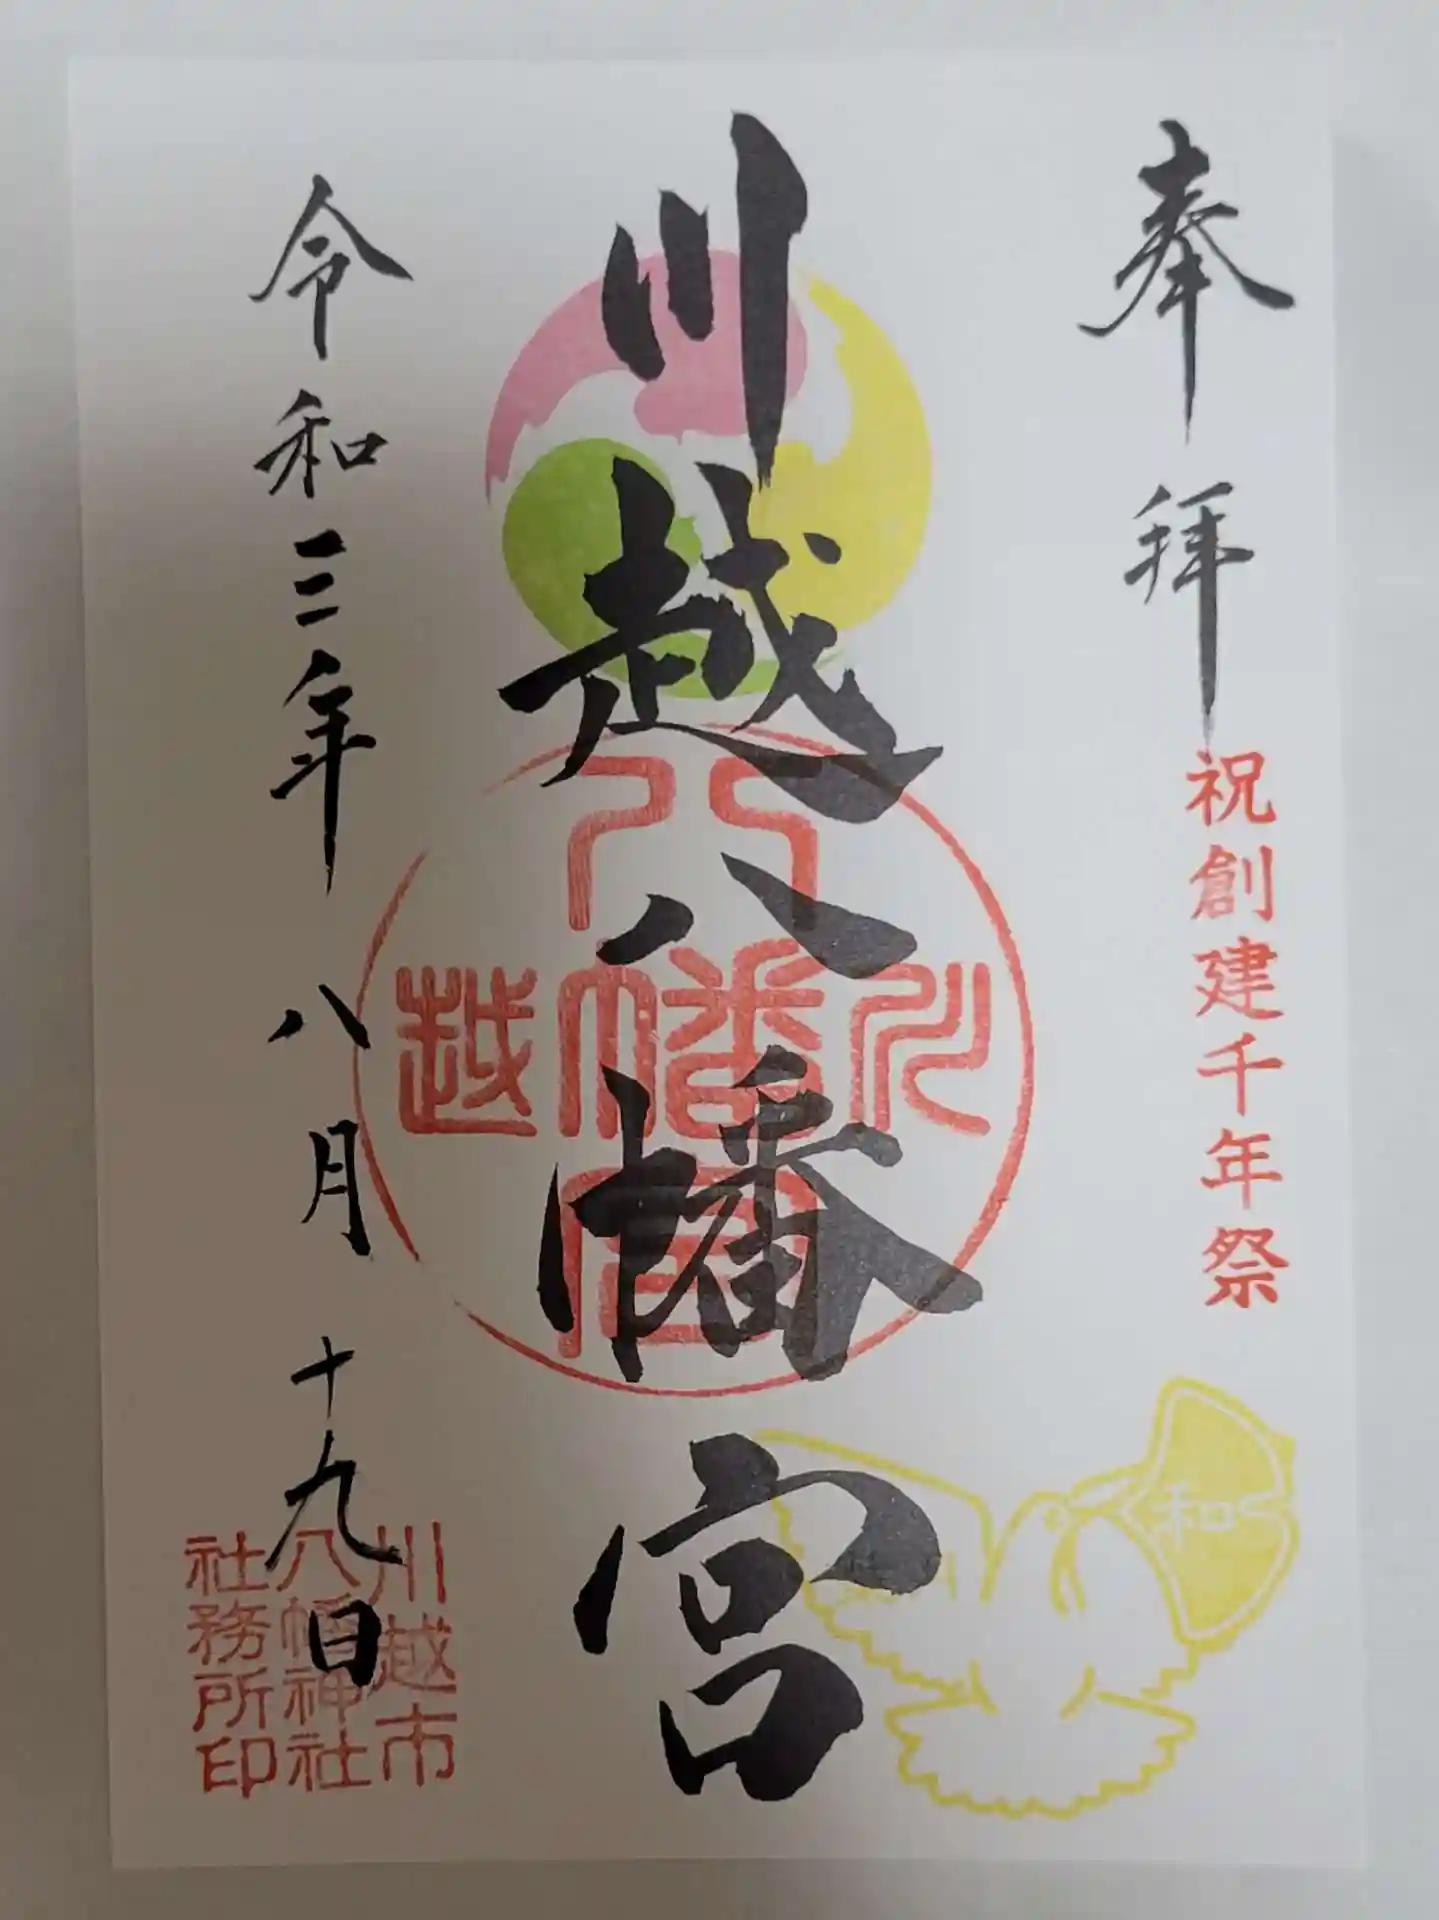 奉拝
祝創建千年祭
和
川越八幡宮
八
川
幡
越
宮
令和三年八月十九日
川越市
八幡神社
社務所印